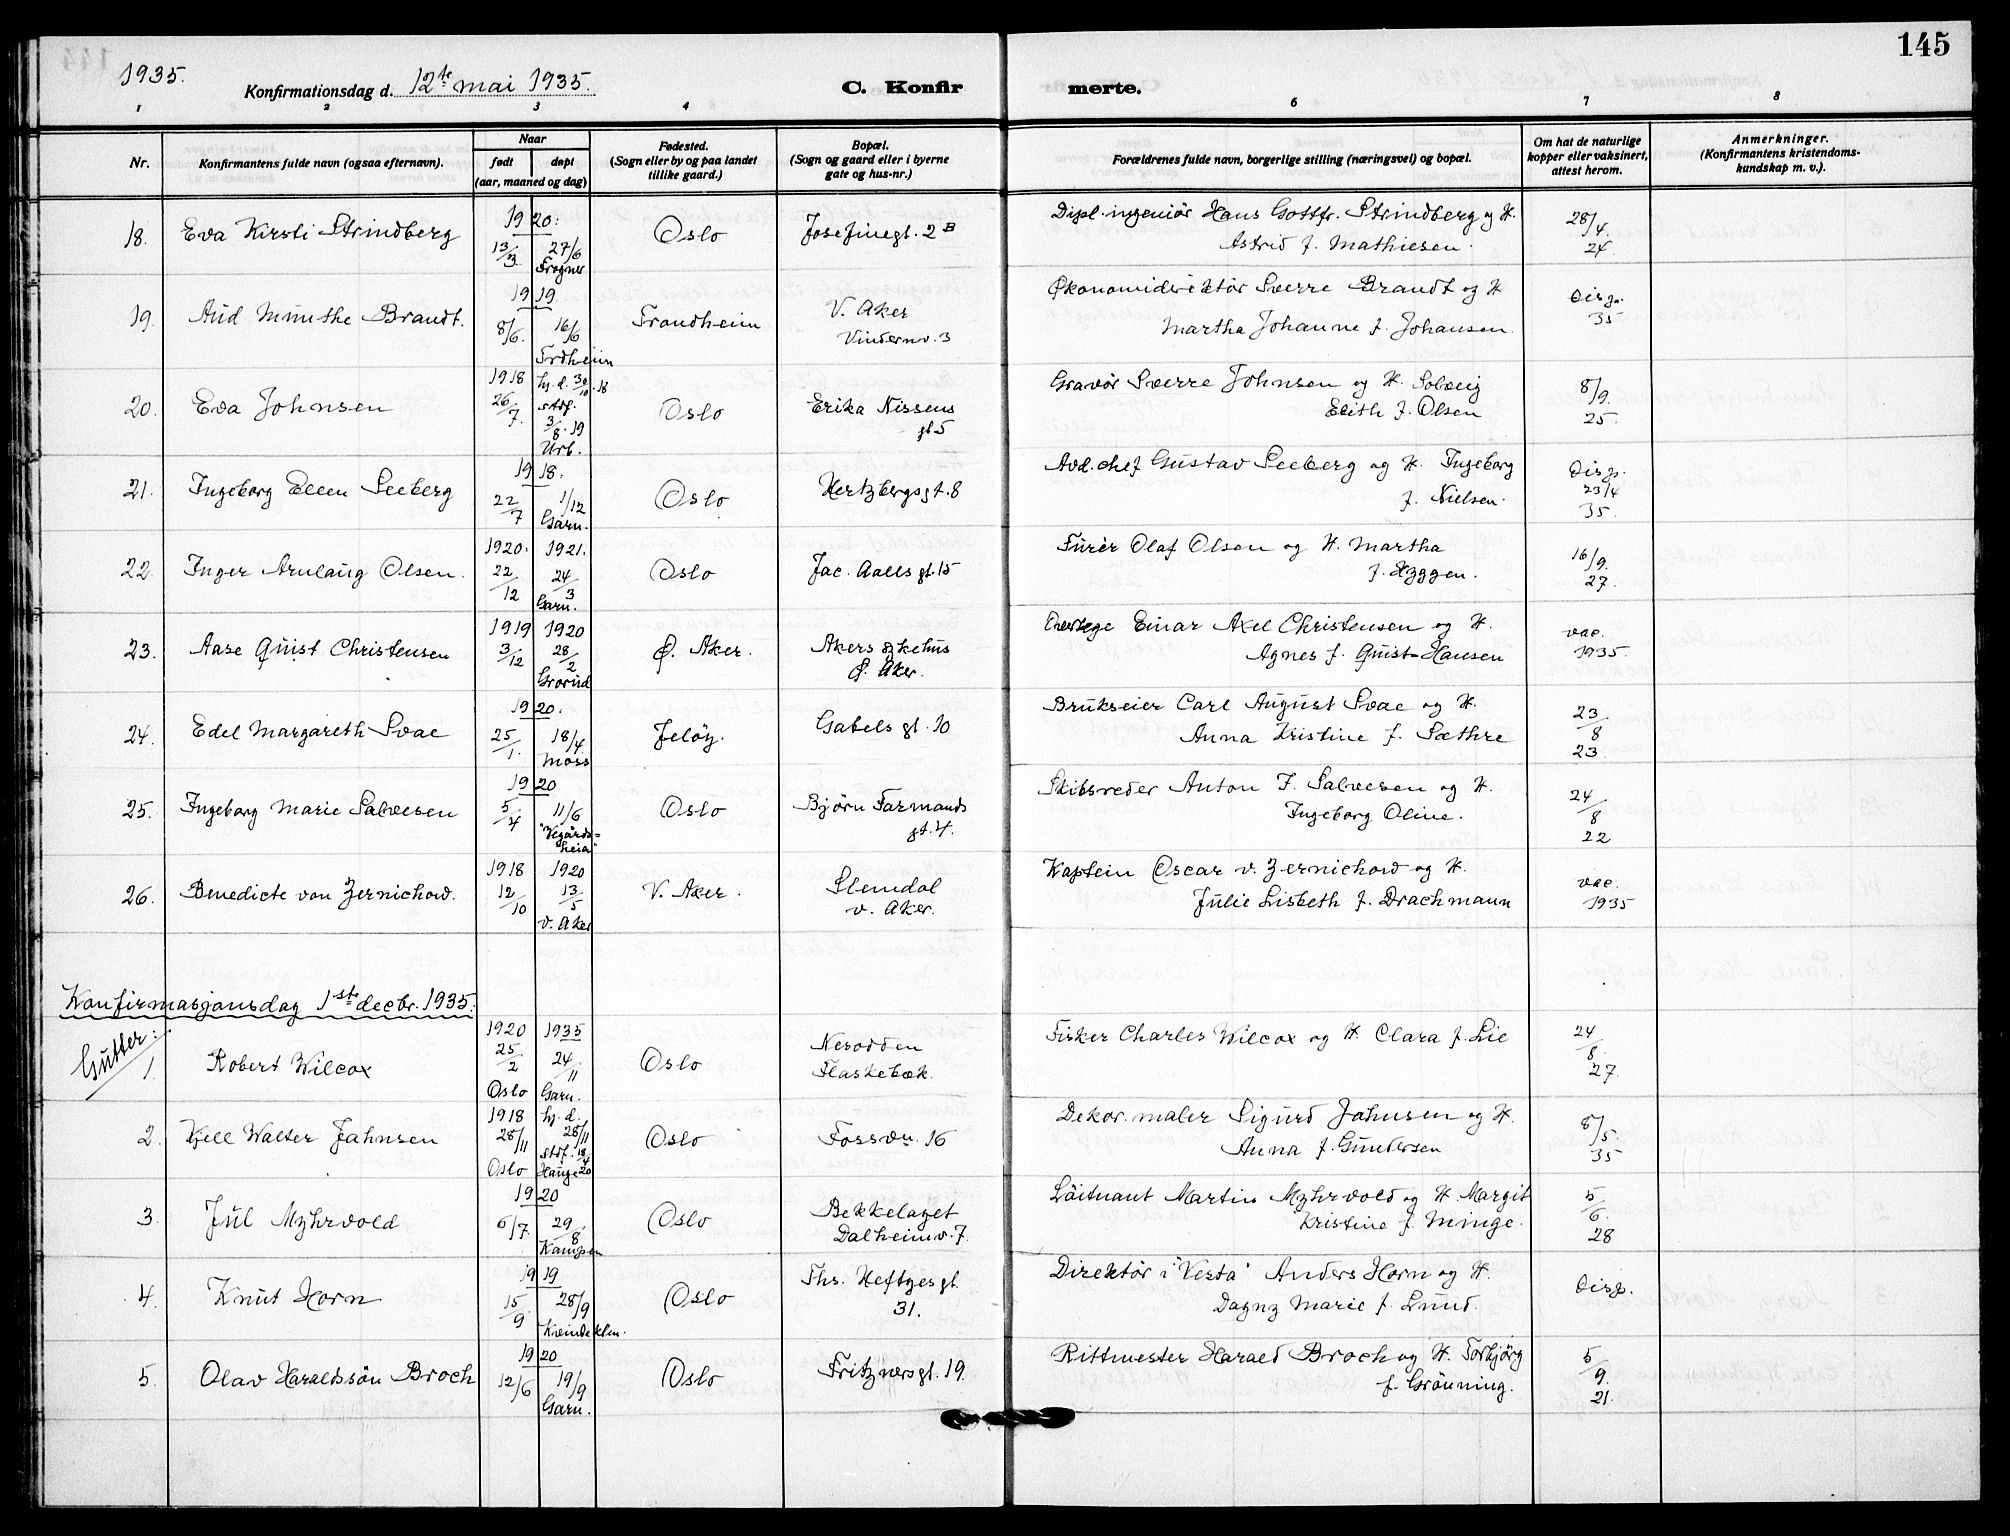 145
1935.
Konfirmationsdag d. 12te mai 1935.
C. Konfir merte.
1 2 3 4 6 7 8
Nr.
Konfirmantens fulde navn (ogsaa efternavn).
Naar
født døpt
(aar, maaned og dag)
Fødested.
(Sogn eller by og paa landet
tillike gaard.)
Bopæl.
(Sogn og gaard eller i byerne
gate og hus-nr.)
Forældrenes fulde navn, borgerlige stilling (næringsvei) og bopæl.
Om hat de naturlige
kopper eller vaksinert,
attest herom.
Anmerkninger.
(Konfirmantens kristendoms-
kundskap m. v.).
18. Eva Kirsti Strindberg
1920:
13/3 27/6
Frogner
Oslo
Josefinegt. 2 B
Dipl.-ingeniör Hans Gottfr. Strindberg og H.
Astrid f. Mathiesen.
28/4.
24
19. Aud Munthe Brandt.
1919
8/6. 16/6
Trdheim
Trondheim
V. Aker
Vindernv. 3
Økonomidirektör Sverre Brandt og H
Martha Johanne f. Johansen.
Disp.
35
20. Eva Johnsen
1918 hj. d. 30/10.18
26/7. stdf.
3/8.19
Urb.
Oslo
Erika Nissens
gt 5
Gravör Sverre Johnsen og H. Solveig
Edith f. Olsen
8/9.
25.
21. Ingeborg Ellen Seeberg
1918:
22/7 1/12
Garn.
Oslo
Hertzbergsgt. 8
Avd. chef Gustav Seeberg og H. Ingeborg
f. Nielsen.
Disp.
23/4
35.
22. Inger Arnlaug Olsen.
1920. 1921.
22/12 24/3
Garn.
Oslo
Jac. Aalls gt. 15
Furèr Olaf Olsen og H. Martha
f. Hyggen.
16/9.
27.
23. Aase Quist Christensen
1919 1920
3/12 28/2
Grorud
Ø. Aker.
Akers sykehus
Ø. Aker.
Overlege Einar Axel Christensen og H.
Agnes f. Quist-Hansen
vac.
1935.
24. Edel Margareth Svae
1920:
25/1. 18/4.
Moss
Jelöy.
Gabels gt. 10
Brukseier Carl August Svae og H.
Anna Kristine f. Sæthre
23/8
23
25. Ingeborg Marie Salvesen
1920
5/4 11/6
"Vegårds=
heia"
Oslo
Björn Farmands
gt. 4.
Skibsreder Anton F. Salvesen og H.
Ingeborg Oline.
24/8
22
26. Benedicte von Zernichow.
1918 1920
12/10 13/5
V. Aker
V. Aker.
Slemdal
v. Aker.
Kaptein Oscar v. Zernichow og H.
Julie Lisbeth f. Drachmann
vac.
1935
Konfirmasjonsdag 1ste decbr. 1935.
Gutter:
1. Robert Wilcox
1920 1935
25/2 24/11
Oslo Garn.
Oslo
Nesodden
Flaskebæk.
Fisker Charles Wilcox og H. Clara f. Lie
24/8.
27.
2. Kjell Walter Jahnsen
1918 hj. d.
28/11 28/11
stdf. 18/4
Oslo Hauge 20
Oslo
Fossvn. 16
Dekor. maler Sigurd Jahnsen og H.
Anna f. Gundersen
8/5.
35
3. Jul Myhrvold
1920
6/7. 29/8
Kampen
Oslo
Bekkelaget
Dalheimv. 7.
Löitnant Martin Myhrvold og H. Margit
Kristine f. Minge.
5/6.
28
4. Knut Horn
1919
15/9 28/9
Oslo
Ths. Heftyes gt.
31.
Direktör i "Vesta" Anders Horn og H.
Dagny Marie f. Lund.
Disp.
5. Olav Haraldssön Broch
1920
12/6 19/9
Garn.
Oslo
Fritznersgt. 19.
Rittmester Harald Broch og H. Torbjörg
f. Grönning.
5/9.
21.